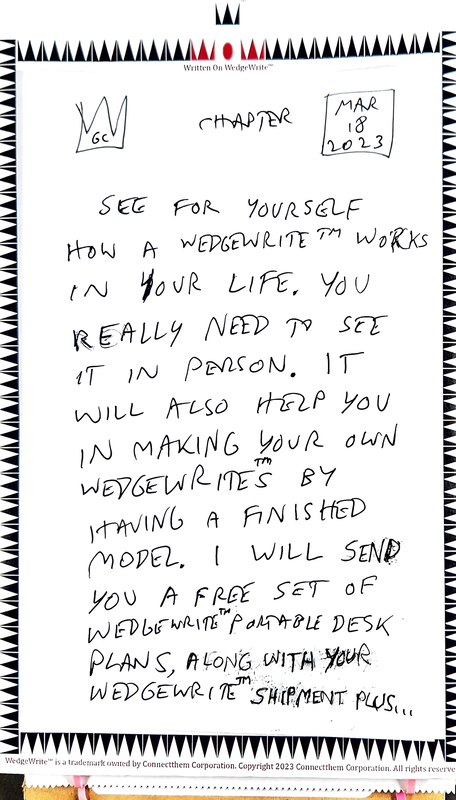 Written On WedgeWrite™
GC
CHAPTER
MAR
18
2023
SEE FOR YOURSELF
HOW A WEDGEWRITE™ WORKS
IN YOUR LIFE. YOU
REALLY NEED TO SEE
IT IN PERSON. IT
WILL ALSO HELP YOU
IN MAKING YOUR OWN
WEDGEWRITE™S BY
HAVING A FINISHED
MODEL. I WILL SEND
YOU A FREE SET OF
WEDGEWRITE™ PORTABLE DESK
PLANS, ALONG WITH YOUR
WEDGEWRITE™ SHIPMENT PLUS...
WedgeWrite™ is a trademark owned by Connectthem Corporation. Copyright 2023 Connectthem Corporation. All rights reserve